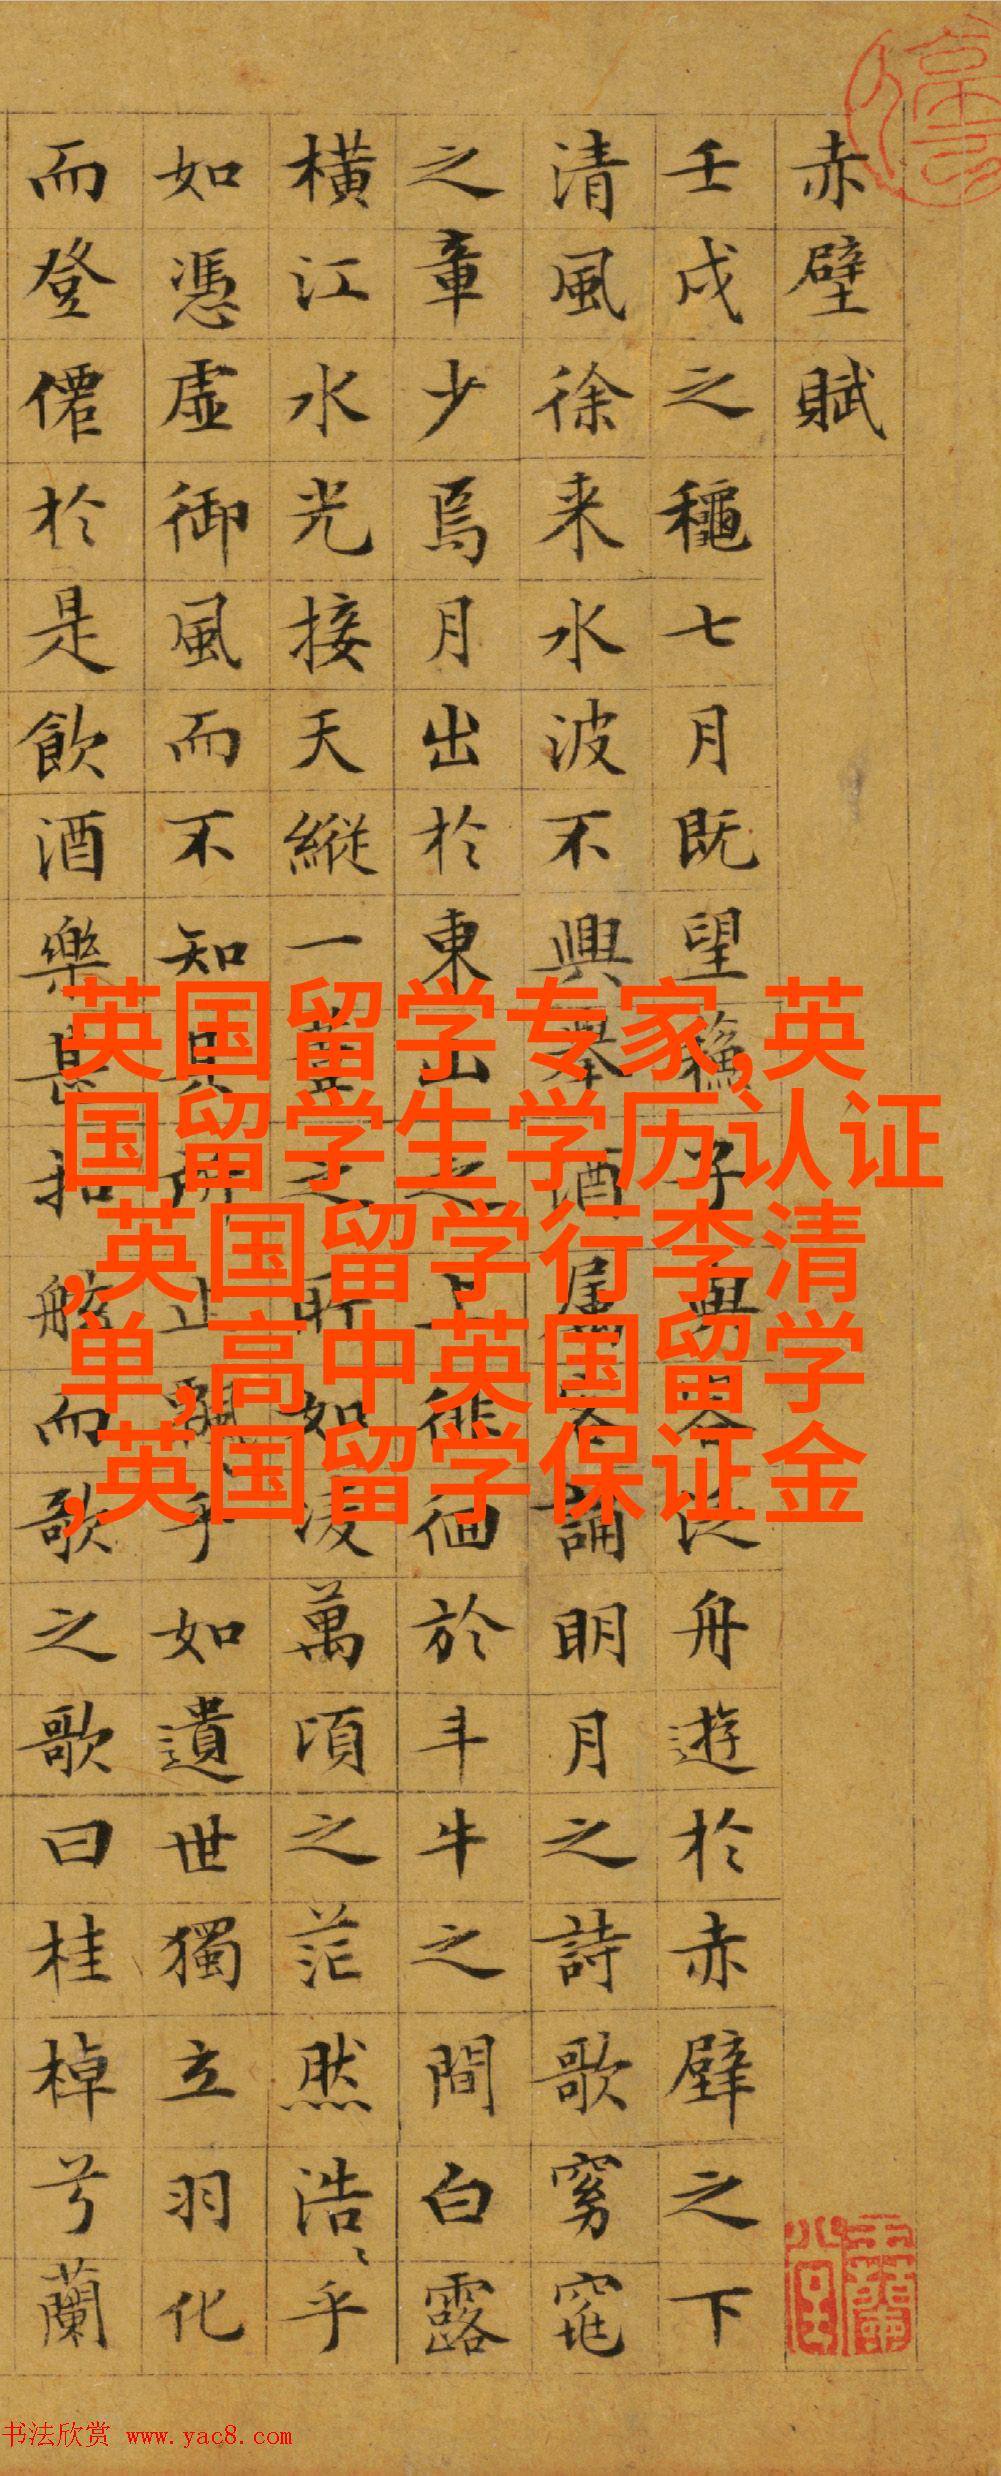 赤壁賦
壬戌之穐七月既望蘓子與客泛舟遊於赤壁之下
清風徐来水波不興舉酒屬客誦明月之詩歌窈窕
之章少焉月出於東山之上徘徊於斗牛之間白露
橫江水光接天縱一葦之所如凌萬頃之茫然浩ゝ乎
如憑虛御風而不知其所止飄ゝ乎如遺世獨立羽化
而登僊於是飲酒樂甚扣舷而歌之歌曰桂棹兮蘭
英国留学专家,英
国留学生学历认证
,英国留学行李清
单,高中英国留学
,英国留学保证金
书法欣赏 www.yac8.com